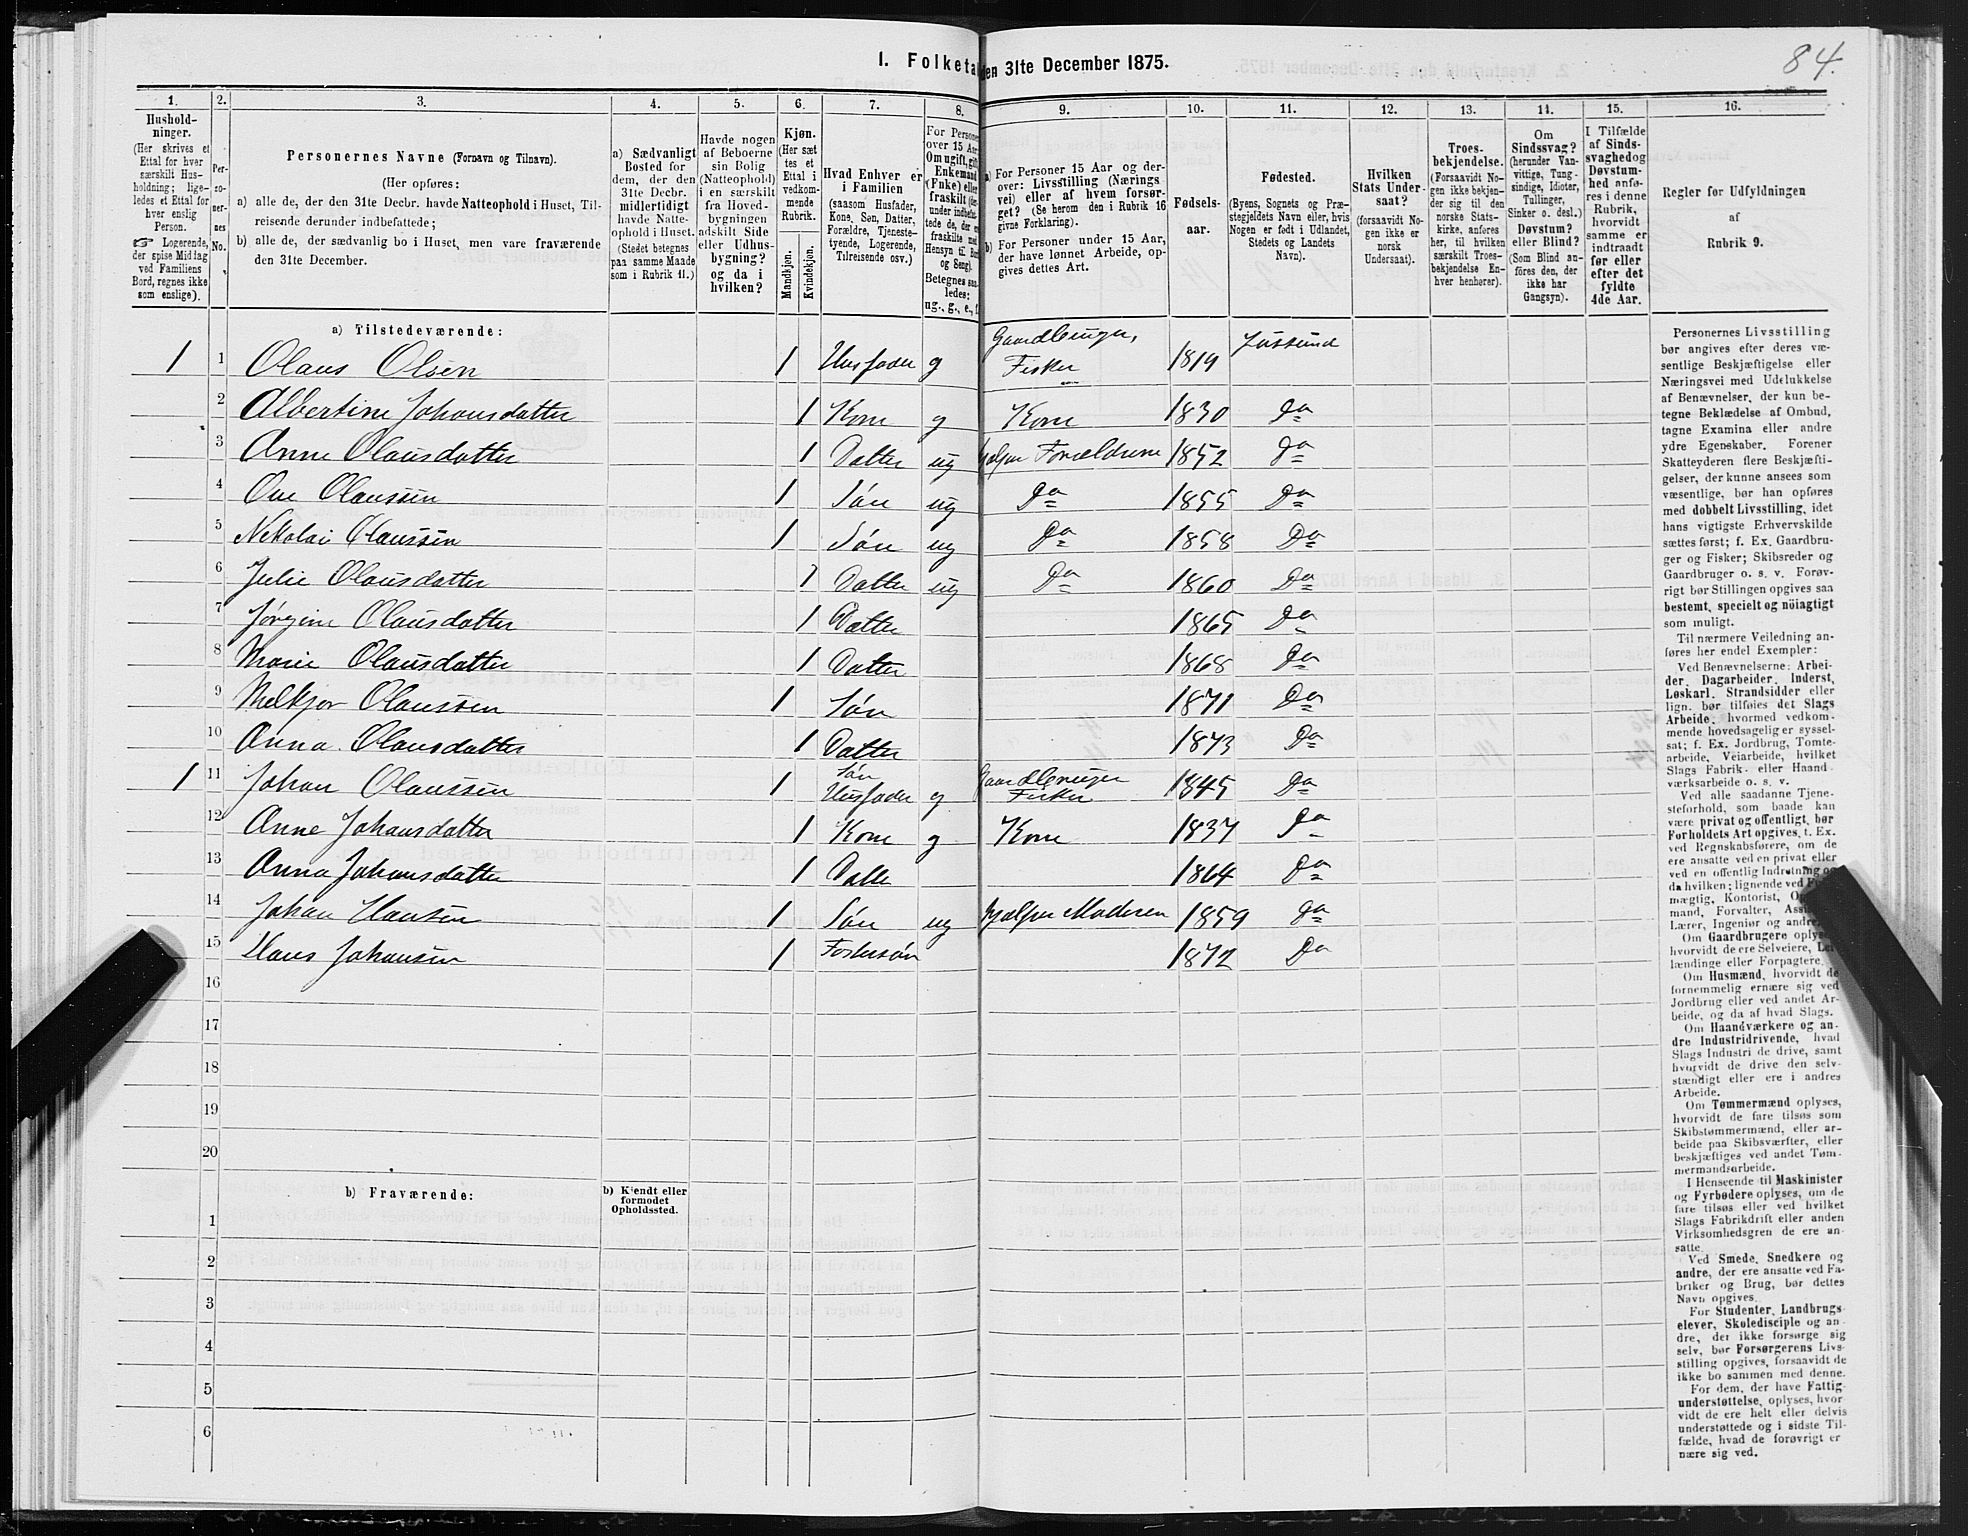 84.
I. Folketa den 31te December 1875.
1. 2. 3. 4. 5. 6. 7. 8. 9. 10. 11. 12. 13. 14. 15. 16.
Hushold-
ninger.
(Her skrives et
Ettal for hver
særskilt Hus-
holdning; lige-
ledes et Ettal for
hver enslig
Person.
☞ Logerende,
der spise Middag
ved Familiens
Bord, regnes ikke
som enslige).
Per-
so-
ner-
nes
No.
Personernes Navne (Fornavn og Tilnavn).
(Her opføres:
a) alle de, der den 31te Decbr. havde Natteophold i Huset, Til-
reisende derunder indbefattede;
b) alle de, der sædvanlig bo i Huset, men vare fraværende
den 31te December.
a) Sædvanligt
Bosted for
dem, der den
31te Decbr.
midlertidigt
havde Natte-
ophold i Huset.
(Stedet betegnes
paa samme Maade
som i Rubrik 11.)
Havde nogen
af Beboerne
sin Bolig
(Natteophold)
i en særskilt
fra Hoved-
bygningen
adskilt Side
eller Udhus-
bygning?
og da i
hvilken?
Kjøn.
(Her sæt
tes et
Ettal i
vedkom-
mende
Rubrik.
Mandkjøn.
Kvindekjøn.
Hvad Enhver er
i Familien
(saasom Husfader,
Kone, Søn, Datter,
Forældre, Tjeneste-
tyende, Logerende,
Tilreisende osv.)
For Persone
over 15 Aar
Om ugift, gift,
Enkemand
(Enke) eller
fraskilt
Betegnes saa-
ledes:
ug., g., e., f.
a) For Personer 15 Aar og der-
over: Livsstilling (Nærings
vei) eller af hvem forsør-
get? (Se herom den i Rubrik 16
givne Forklaring).
b) For Personer under 15 Aar,
der have lønnet Arbeide, op-
gives dettes Art.
Fødsels-
aar.
Fødested.
(Byens, Sognets og Præ-
stegjeldets Navn eller, hvis
Nogen er født i Udlandet,
Stedets og Landets
Navn).
Hvilken
Stats Under-
saat?
(forsaavidt No-
gen ikke er
norsk
Undersaat).
Troes-
bekjendelse.
(Forsaavidt No-
gen ikke bekjen-
der sig til den
norske Stats-
kirke, anføres
her, til hvilken
særskilt Troes-
bekjendelse En-
hver henhører).
Om
Sindssvag?
(herunder Van-
vittige, Tung-
sindige, Idioter,
Tullinger,
Sinker o. desl.)
Døvstum?
eller Blind?
(Som Blind an-
føres den, der
ikke har
Gangsyn).
I Tilfælde
af Sinds-
svaghedog
Døvstum-
hed anfø-
res i denne
Rubrik,
hvorvidt
samme er
indtraadt
før eller
efter det
fyldte
4de Aar.
Regler for Udfyldningen
af
Rubrik 9.
a) Tilstedeværende:
1 1 Olaus Olsen 1 Husfader g Gaardbruger, Fisker 1819
2 Albertine Johansdatter 1 Kone g Kone 1830 Do
3 Anne Olausdatter 1 Datter ug hjælper Forældrene 1852 Do
4 Ove Olaussen 1 Søn ug Do 1855 Do
5 Nikolai Olaussen 1 Søn ug Do 1858 Do
6 Julie Olausdatter 1 Datter ug Do 1860 Do
7 Jørgine Olausdatter 1 Datter 1865 Do
8 Marie Olausdatter 1 Datter 1868 Do
9 Melkjor Olaussen 1 Søn 1871 Do
10 Anna Olausdatter 1 Datter 1873 Do
1 11 Johan Olaussen 1 Søn Husfader g Gaardbruger Fisker 1845 Do
12 Anne Johansdatter 1 Kone g Kone 1837 Do
13 Anna Johansdatter 1 Datter 1864 Do
14 Johan Hansen 1 Søn ug hjælper Moderen 1859 Do
15 Hans Johansen 1 Fostersøn 1872 Do
16
17
18
19
20
b) Fraværende:
b) Kjendt eller
formodet
Opholdssted.
1
2
3
4
5
6
Personernes Livsstilling
bør angives efter deres væ-
sentlige Beskjæftigelse eller
Næringsvei med Udelukkelse
af Benævnelser, der kun be-
tegne Beklædelse af Ombud,
tagne Examina eller andre
ydre Egenskaber. Forener
Skatteyderen flere Beskjæfti-
gelser, der kunne ansees som
væsentlige, bør han opføres
med dobbelt Livsstilling, idet
hans vigtigste Erhvervskilde
sættes først; f. Ex. Gaardbru-
ger og Fisker; Skibsreder og
Gaardbruger o. s. v. Forøv-
rigt bør Stillingen opgives saa
bestemt, specielt og nöiagtigt
som muligt.
Til nærmere Veiledning an-
føres her endel Exempler:
Ved Benævnelserne: Arbei-
der, Dagarbeider, Inderst,
Løskarl, Strandsidder eller
lign. bør tilføies det Slags
Arbeide, hvormed vedkom-
mende hovedsagelig er syssel-
sat; f. Ex. Jordbrug, Tomte-
arbeide, Veiarbeide, hvilket
Slags Fabrik- eller Haand-
værksarbeide o. s. v.
Ved alle saadanne Tjene-
steforhold, som baade kan
være privat og offentligt, bør
Forholdets Art opgives, t. Ex.
ved Regnskabsførere, om de
ere ansatte ved en privat eller
ved en offentlig Indretning og
da hvilken; lignende ved
mægtig, Kontorist,
mand, Forvalter,
Lærer, Ingeniør og andre.
Om Gaardbrugere oplyses,
hvorvidt de ere Selveiere,
lændinge eller Forpagtere.
Om Husmænd, hvorvidt de
fornemmelig ernære sig ved
Jordbrug eller ved andet Ar-
beide, og da af hvad Slags.
Om Haandværkere og an-
dre Industridrivende, hvad
Slags Industri de drive, samt
hvorvidt de drive den selv-
stændigt eller ere i andres
Arbeide.
Om Tømmermænd oplyses,
hvorvidt de fare tilsøs som
Skibstømmermænd, eller ar-
beide paa Skibsværfter, eller
beskjæftiges ved andet Tøm-
mermandsarbeide.
I Henseende til Maskinister
og Fyrbødere oplyses, om de
fare tilsøs eller ved hvilket
Slags Fabrikdrift eller anden
Virksomhedsgren de ere an-
satte.
Ved Smede, Snedkere og
andre, der ere ansatte ved Fa-
briker og Brug, bør dettes
Navn opgives.
For Studenter, Landbrugs-
elever, Skoledisciple og an-
dre, der ikke forsørge sig
selv, bør Forsørgerens Livs-
stilling opgives, forsaavidt de
ikke bo sammen med denne.
For dem, der have Fattig-
understøttelse, oplyses, hvor-
vidt de ere helt eller delvis
understøttede og i sidste Til-
fælde, hvad de forøvrigt er
nære sig ved.